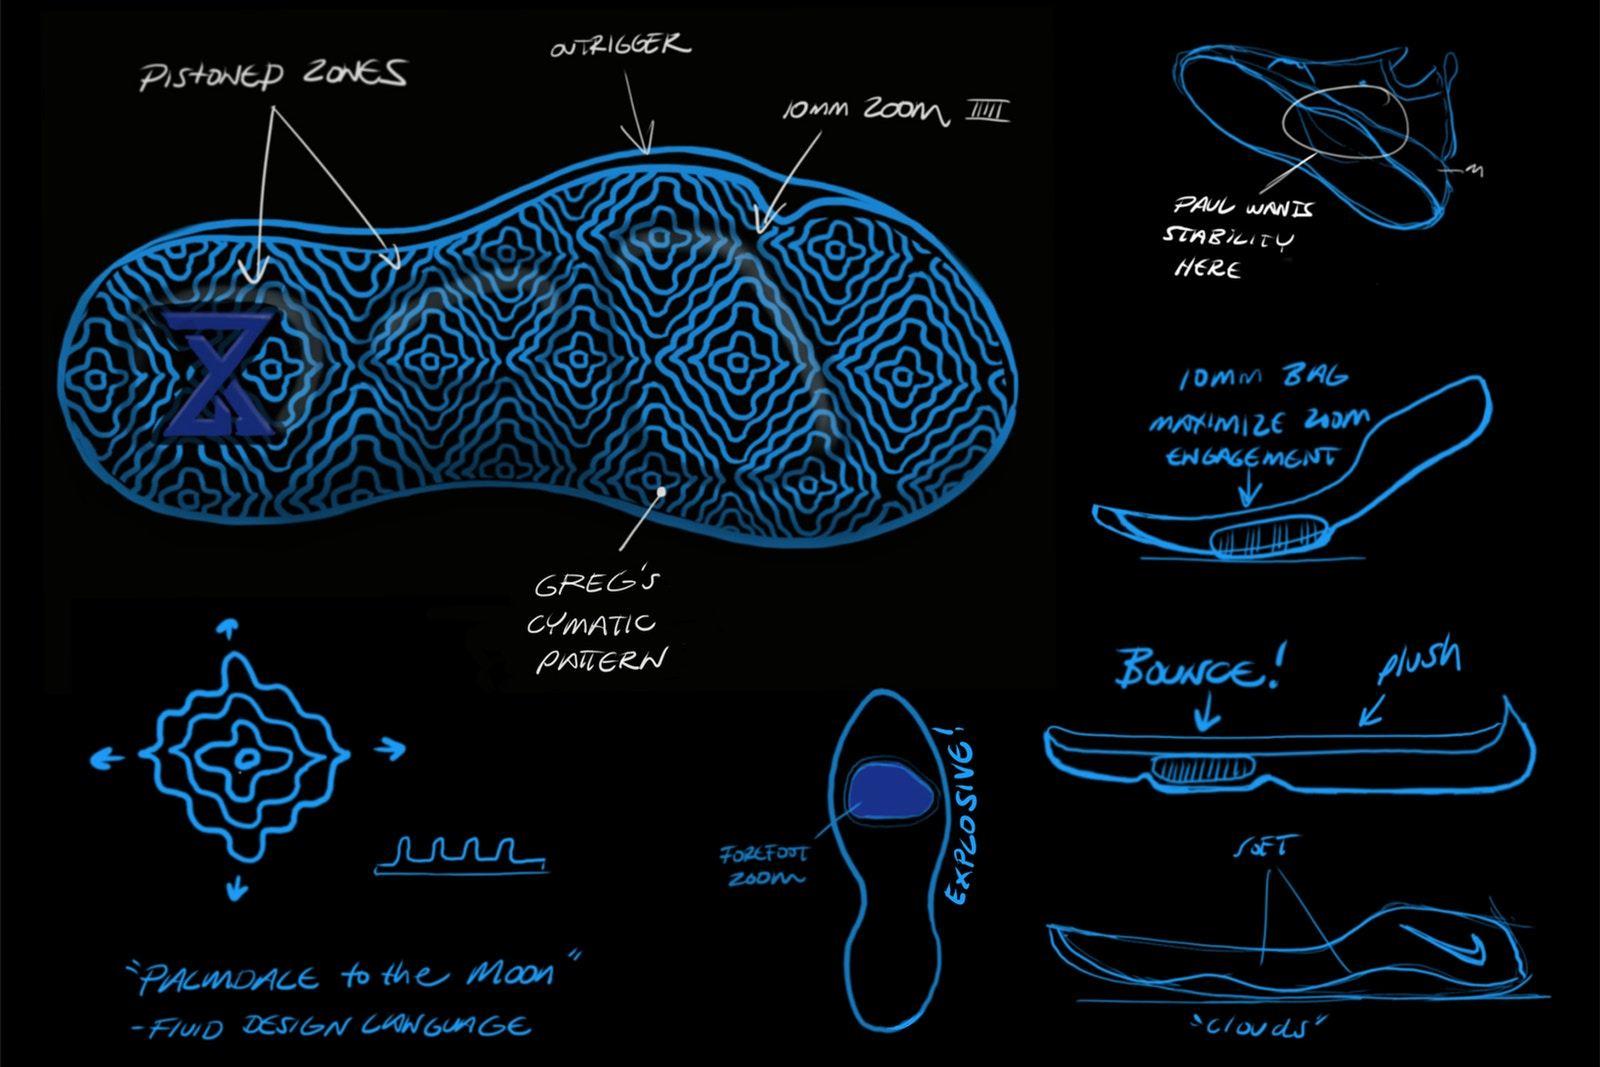 PISTONED ZONES
OUTRIGGER
10MM ZOOM
GREG'S
CYMATIC
PATTERN
PAUL WANTS
STABILITY
HERE
10MM BAG
MAXIMIZE ZOOM
ENGAGEMENT
BOUNCE!
plush
FOREFOOT
ZOOM
EXPLOSIVE!
SOFT
"Clouds"
"PALMDALE to the MOON"
-FLUID DESIGN LANGUAGE